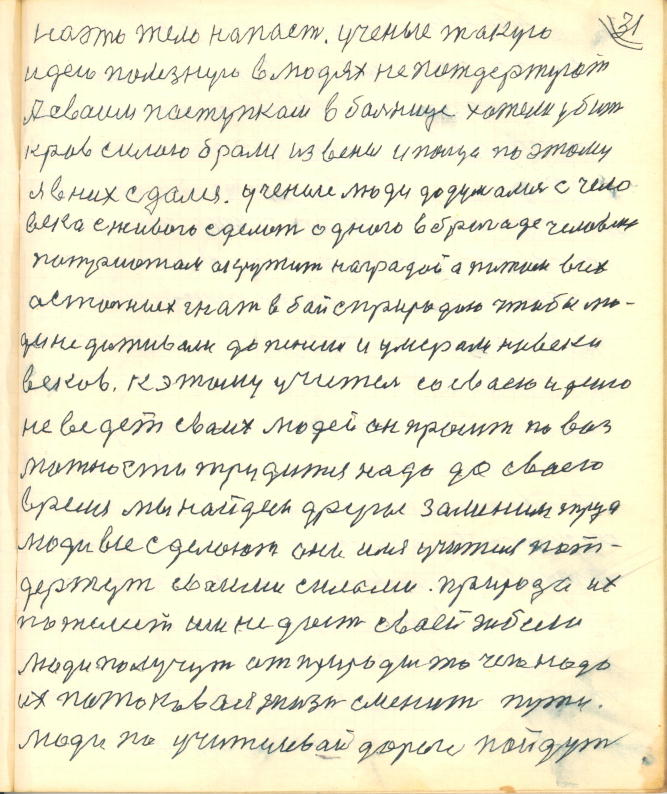 31
на это тело напаст. ученые такую
идею полезную в людях не потдержуют
А сваим паступкам в больнице хотели убит
кров силою брали из вены и польца поэтому
я в них сдался. ученые люди додумались с чело
века с живого сделат одного в бригаде человека
потриотам окружит наградой а потом всех
остольных гнат в бой с природою чтобы лю-
ди не доживали до жизни и умерали на веки
веков. к этому учител со сваею идеею
не ведет сваих людей он просит по воз
можности трудится надо до сваего
время мы найдем другие заменим труд
люди все сделают они имя учителя пот-
держут сваими силами. природа их
пожелеет им не даст сваей гибели
люди получут от природы то чего надо
их поток вся жизн сменит пути.
люди по учителевай дороге пойдут